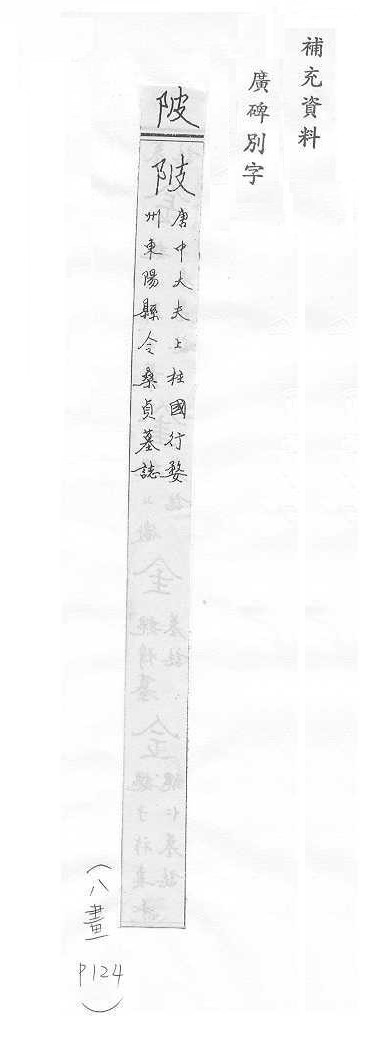 補充資料
廣碑別字
陂
陂
唐中大夫上柱國行婺
州東陽縣令桑貞墓誌
(八畫 P124)